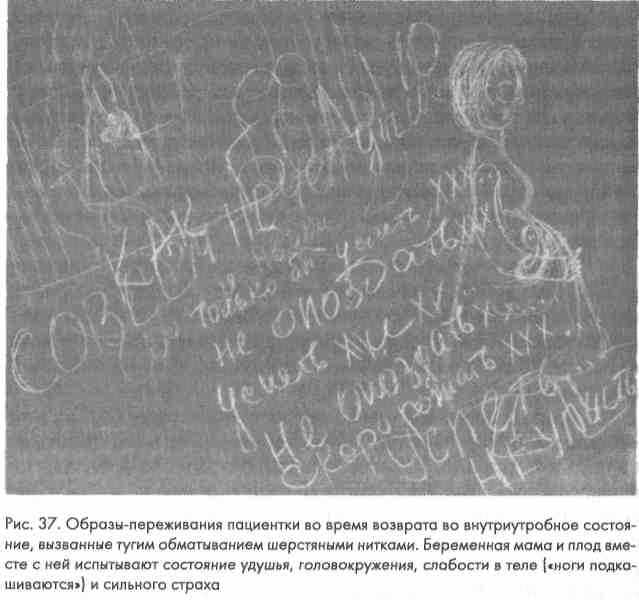 СОВСЕМ
КАК НЕ
только бы успеть ххх...
не опоздать
успеть
не опоздать
скоро рожать ххх...
успеть...
НЕ УПУСТИ
Рис. 37. Образы-переживания пациентки во время возврата во внутриутробное состоя-
ние, вызванные тугим обматыванием шерстяными нитками. Беременная мама и плод вме-
сте с ней испытывают состояние удушья, головокружения, слабости в теле («ноги подка-
шиваются») и сильного страха